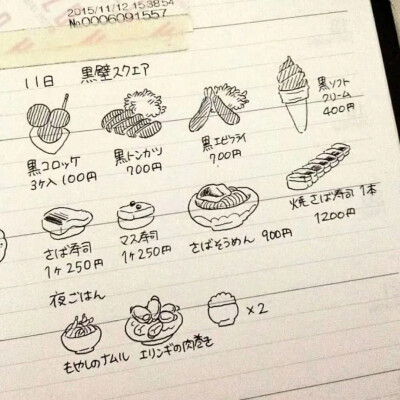 2015/11/12 15:38 54
No0006091557
11日 黒壁スクエア
黒コロッケ
3ヶ入 100円
黒トンカツ
700円
黒エビフライ
700円
黒ソフト
クリーム
400円
さば寿司
1ヶ250円
マス寿司
1ヶ250円
さばそうめん 900円
焼さば寿司 1本
1200円
夜ごはん
もやしのナムル
エリンギの肉巻き
×2